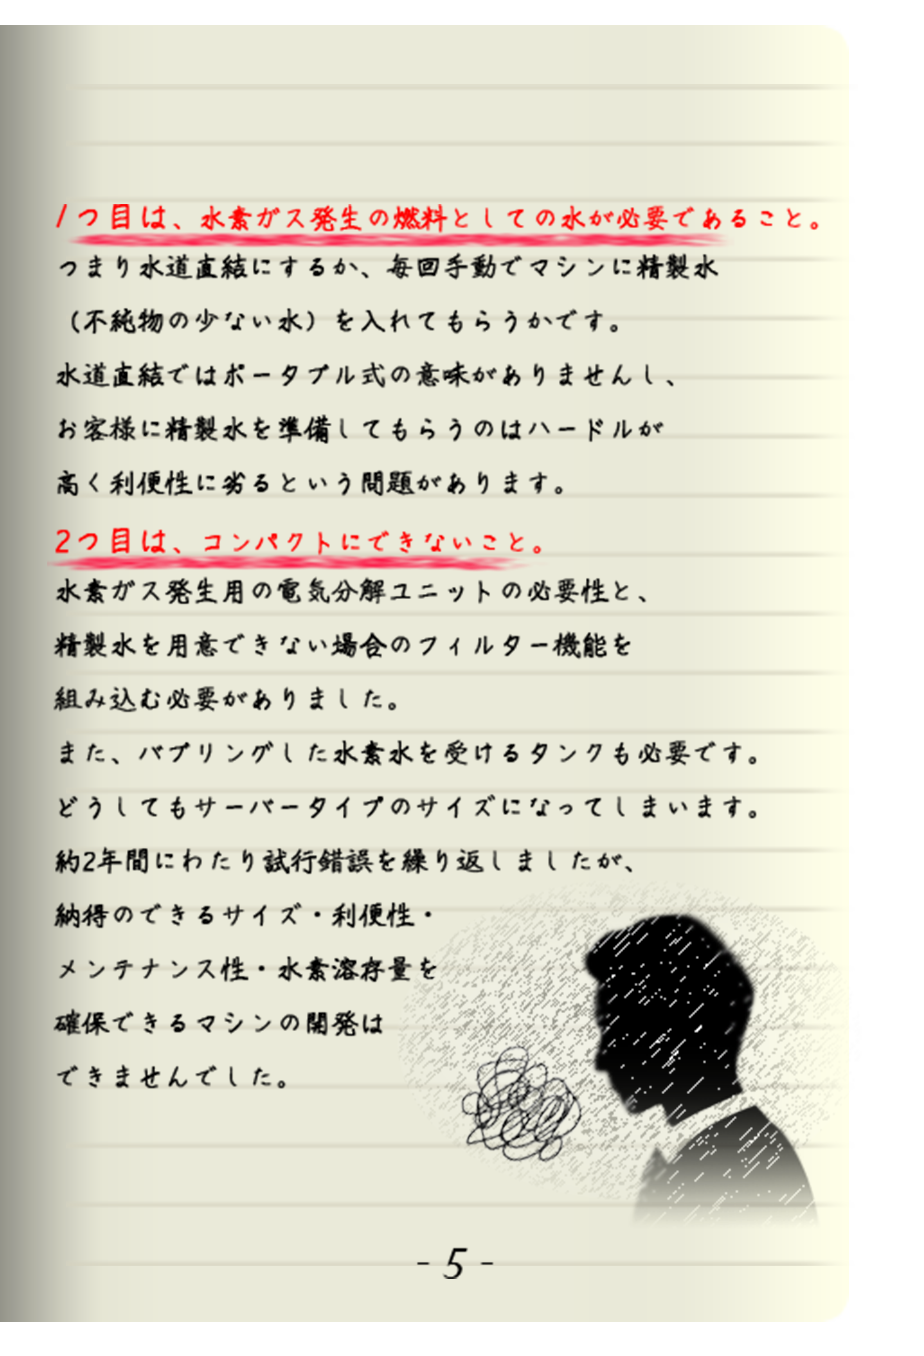 1つ目は、水素ガス発生の燃料としての水が必要であること。
つまり水道直結にするか、毎回手動でマシンに精製水
（不純物の少ない水）を入れてもらうかです。
水道直結ではポータブル式の意味がありませんし、
お客様に精製水を準備してもらうのはハードルが
高く利便性に劣るという問題があります。
2つ目は、コンパクトにできないこと。
水素ガス発生用の電気分解ユニットの必要性と、
精製水を用意できない場合のフィルター機能を
組み込む必要がありました。
また、バブリングした水素水を受けるタンクも必要です。
どうしてもサーバータイプのサイズになってしまいます。
約2年間にわたり試行錯誤を繰り返しましたが、
納得のできるサイズ・利便性・
メンテナンス性・水素溶存量を
確保できるマシンの開発は
できませんでした。
- 5 -